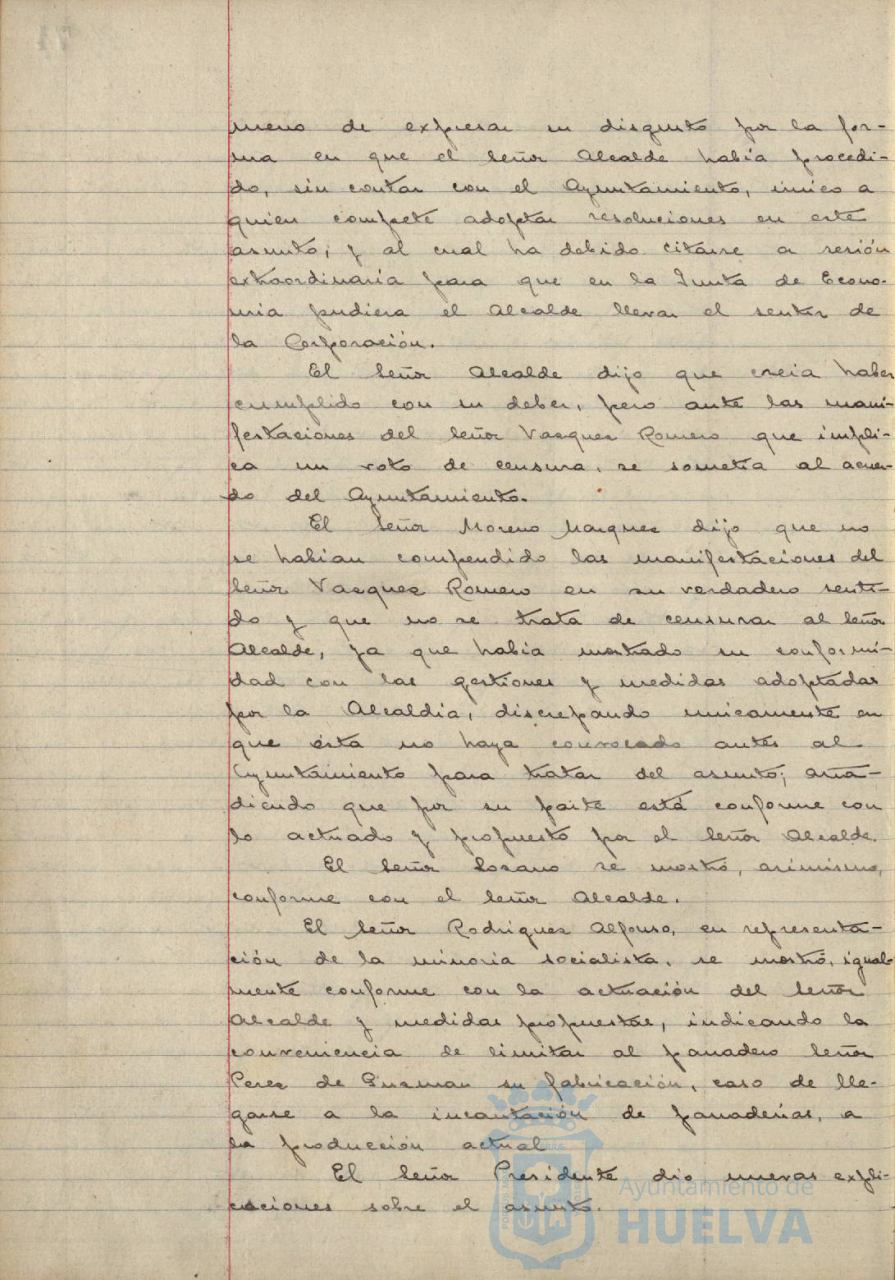 meno de expresar su disgusto por la for-
ma en que el señor Alcalde había procedi-
do, sin contar con el Ayuntamiento, único a
quien compete adoptar resoluciones en este
asunto; y al cual ha debido citarse a sesión
extraordinaria para que en la Junta de Econo-
mia pudiera el Alcalde llevar el sentir de
la Corporación.
El señor Alcalde dijo que creia haber
cumplido con su deber, pero ante las mani-
festaciones del señor Vasquez Romero que impli-
ca un voto de censura, se sometía al acuer-
do del Ayuntamiento.
El señor Moreno Marquez dijo que no
se habian compendido las manifestaciones del
señor Vazquez Romero en su verdadero senti-
do y que no se trata de censurar al señor
Alcalde, ya que había mostrado su conformi-
dad con las gestiones y medidas adoptadas
por la Alcaldía, discrepando unicamente en
que ésta no haya convocado antes al
Ayuntamiento para tratar del asunto; aña-
diendo que por su parte está conforme con
lo actuado y propuesto por el señor Alcalde.
El señor Lozano se mostró, asimismo,
conforme con el señor Alcalde.
El señor Rodriguez Alfonso, en representa-
ción de la minoria socialista, se mostró, igual-
mente conforme con la actuación del señor
Alcalde y medidas propuestas, indicando la
conveniencia de limitar al panadero señor
Perez de Guzman su fabricación, caso de lle-
garse a la incautación de panaderías, a
la producción actual
El señor Presidente dio nuevas expli-
caciones sobre el asunto.
Ayuntamiento de
HUELVA